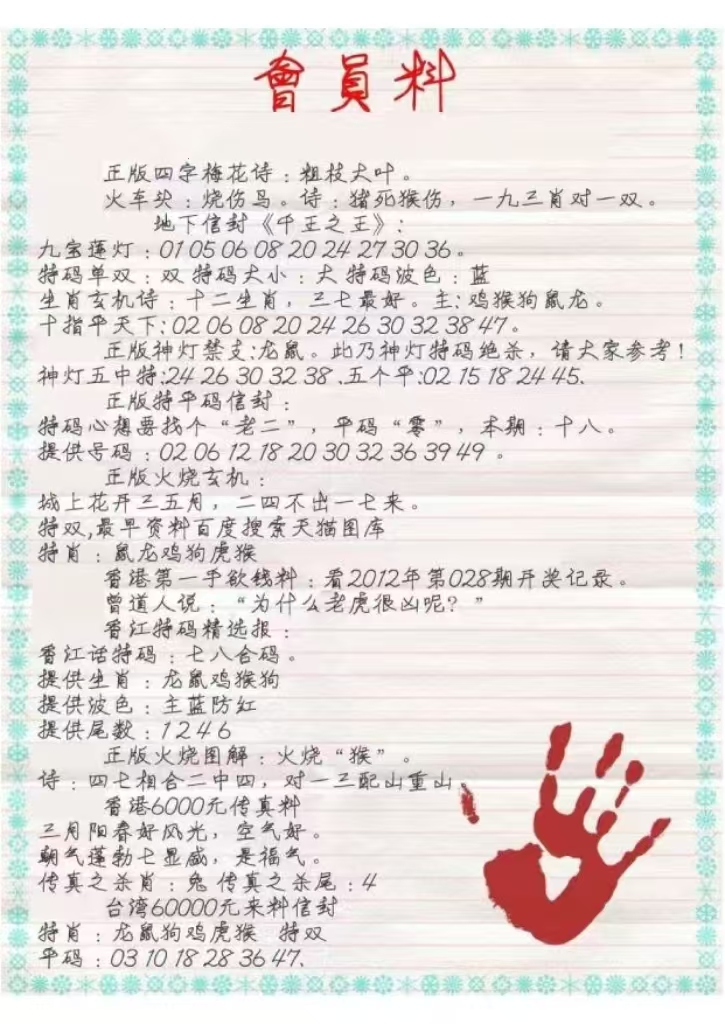 會員料
正版四字梅花诗：粗枝大叶。
火车块：烧伤马。诗：猪死猴伤，一九三肖对一双。
地下信封《千王之王》：
九宝莲灯：01 05 06 08 20 24 27 30 36。
特码单双：双 特码大小：大 特码波色：蓝
生肖玄机诗：十二生肖，三七最好。主：鸡猴狗鼠龙。
十指平天下：02 06 08 20 24 26 30 32 38 47。
正版神灯禁支:龙鼠。此乃神灯特码绝杀，请大家参考！
神灯五中特:24 26 30 32 38 .五个平:02 15 18 24 45.
正版特平码信封：
特码心想要找个“老二”，平码“零”，本期：十八。
提供号码：02 06 12 18 20 30 32 36 39 49 。
正版火烧玄机：
城上花开三五月，二四不出一七来。
特双,最早资料百度搜索天猫图库
特肖：鼠龙鸡狗虎猴
香港第一手欲钱料：看2012年第028期开奖记录。
曾道人说：“为什么老虎很凶呢？”
香江特码精选报：
香江话特码：七八合码。
提供生肖：龙鼠鸡猴狗
提供波色：主蓝防红
提供尾数：1 2 4 6
正版火烧图解：火烧“猴”。
诗：四七相合二中四，对一三配山重山。
香港6000元传真料
三月阳春好风光，空气好。
朝气蓬勃七显威，是福气。
传真之杀肖：兔 传真之杀尾：4
台湾60000元来料信封
特肖：龙鼠狗鸡虎猴 特双
平码：03 10 18 28 36 47.